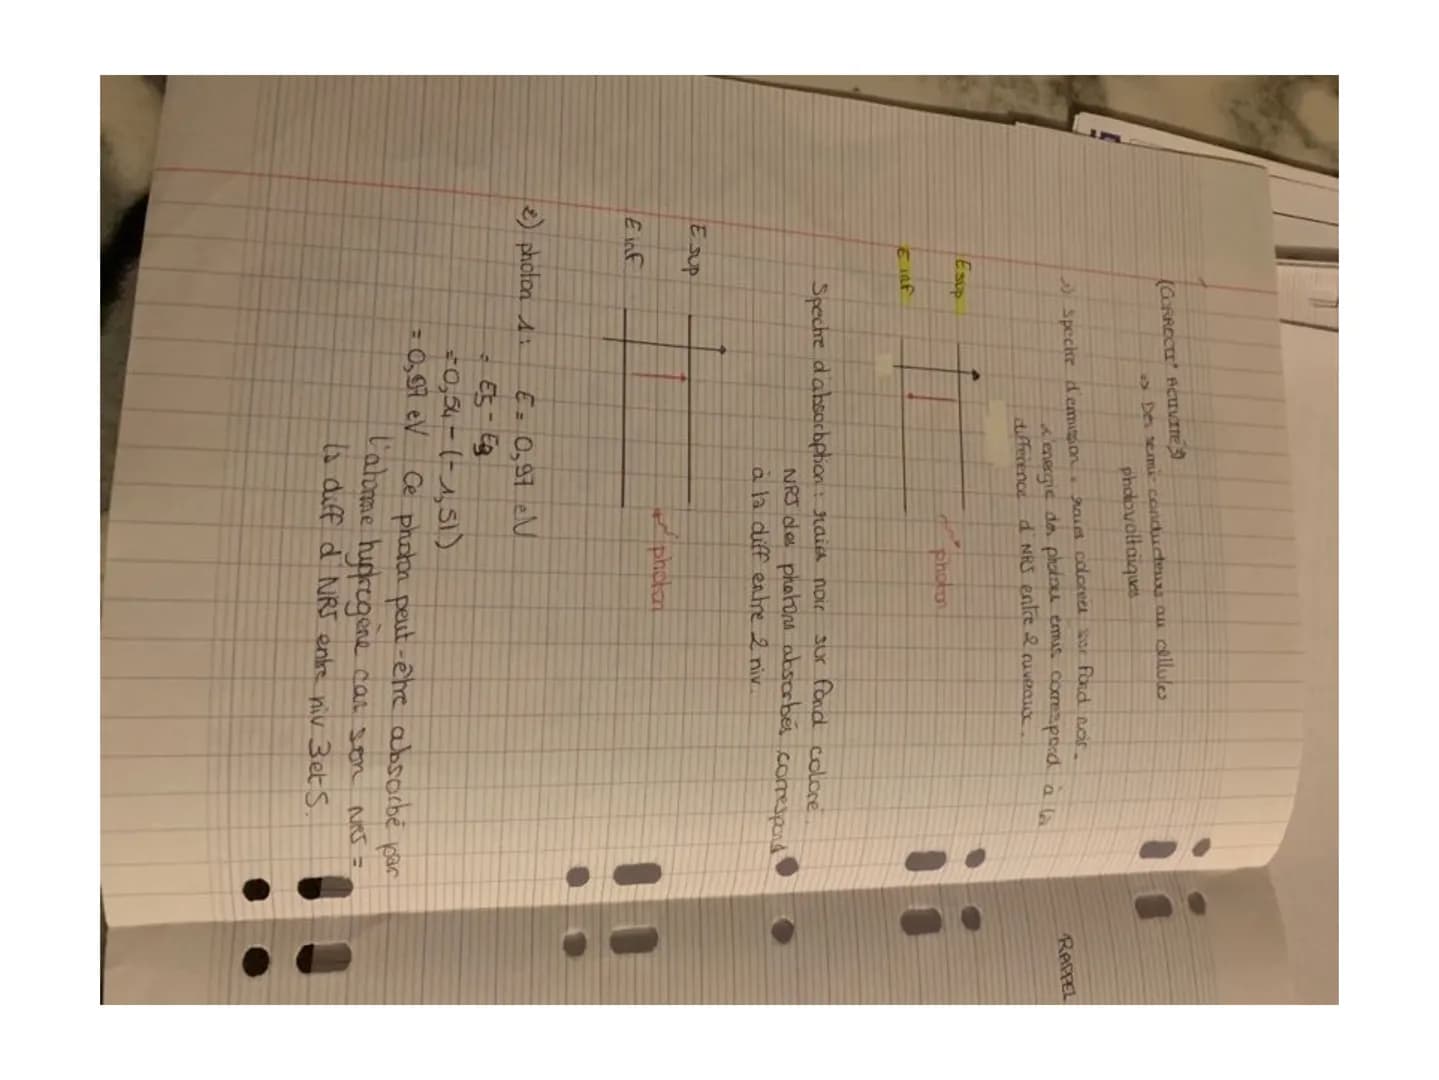 (CORRECT° ACTIVITÉ 3)
=> Des semi-conducteurs au cellules
photovoltaïques
1) Spectre d'émission : raies colorées sur fond noir.
L'énergie des photons émus correspond à la
différence d NRJ entre 2 niveaux.
E sup
E inf
photon
Spectre d'absorbption : raies noir sur fond coloré.
NRJ des photons absorbés correspond
à la diff entre 2 niv.
E sup
E inf
photon
2) photon 1 : E = 0,97 eV
= E5 - E3
= -0,54 - (-1,51)
= 0,97 eV Ce photon peut-être absorbé par
l'atome hydrogène car son NRJ =
la diff d NRJ entre niv 3 et 5.
RAPPEL